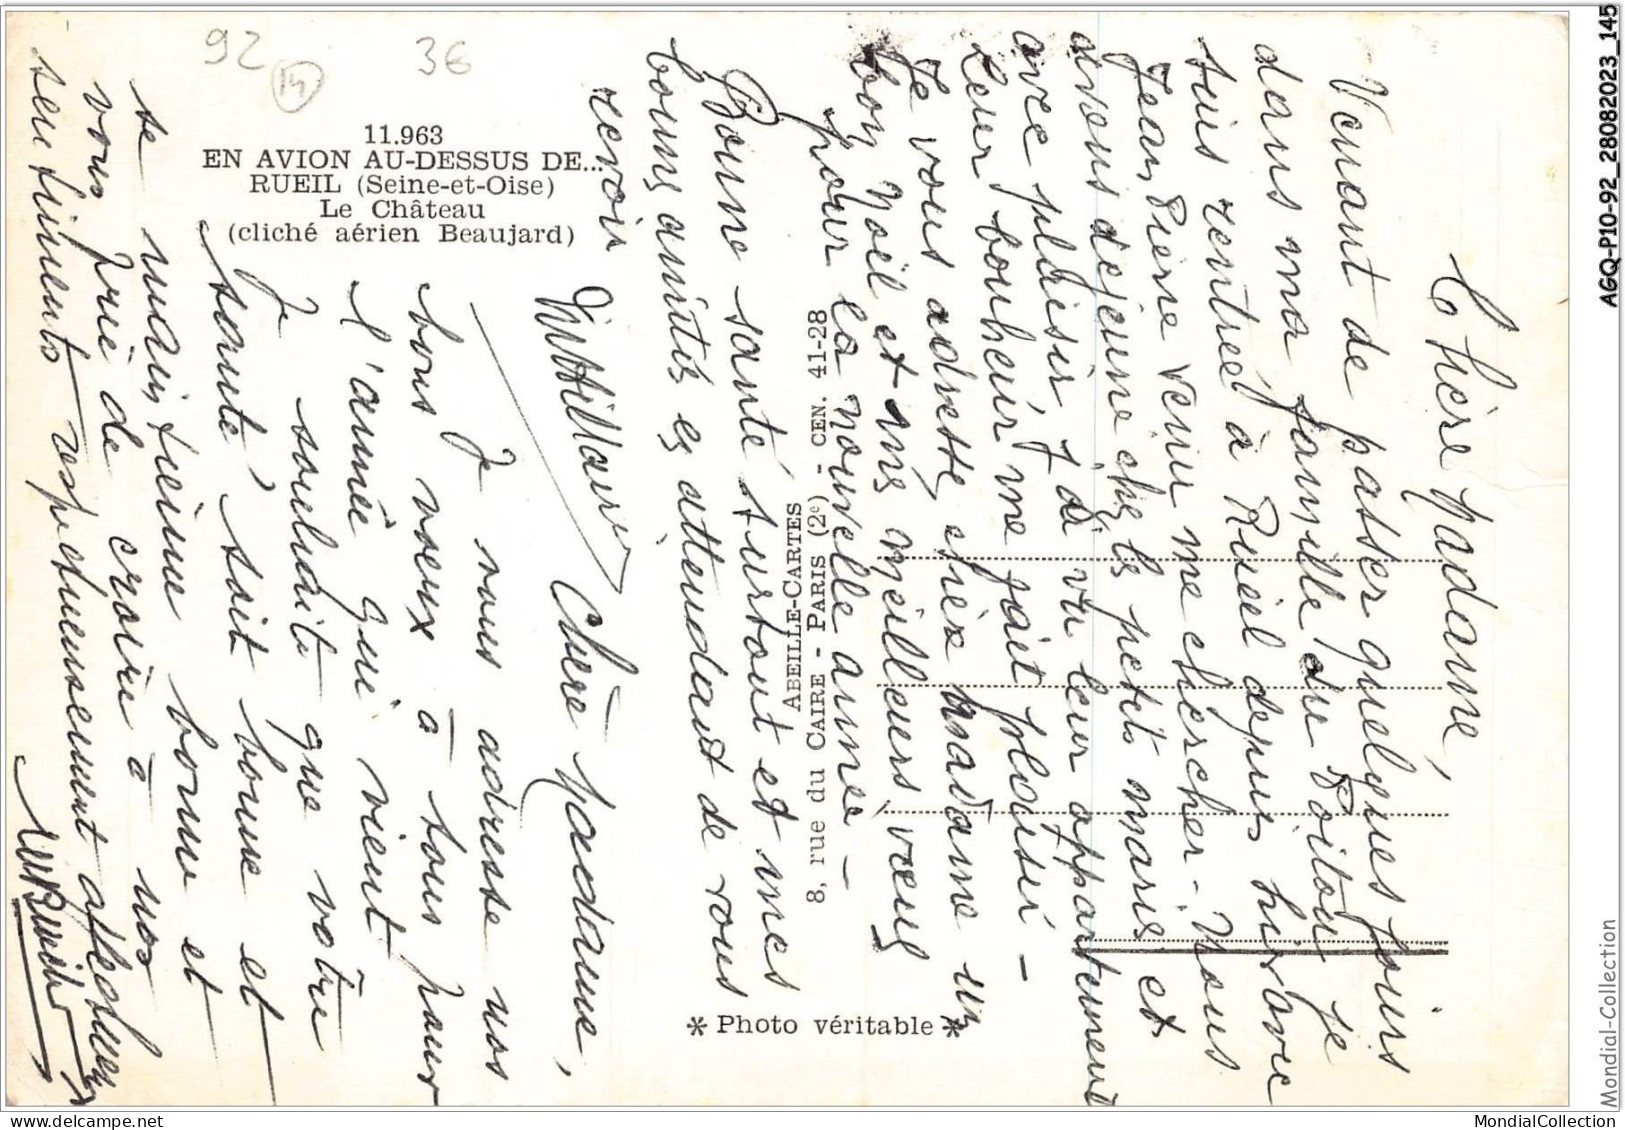 92
14
36
11.963
EN AVION AU-DESSUS DE...
RUEIL (Seine-et-Oise)
Le Château
(cliché aérien Beaujard)
ABEILLE-CARTES
8, rue du CAIRE - PARIS (2e) - CEN. 41-28
* Photo véritable *
Chère Madame,
Venant de passer quelques jours
dans ma famille du Poitou je
suis rentrée à Rueil depuis hier avec
Jean Pierre venu me chercher - Nous
avons dejeune chez les petits mariés et
avec plaisir j'ai vu leur appartement
Leur bonheur me fait plaisir -
Je vous adresse chère Madame un
bon Noël et mes meilleurs vœux
pour la nouvelle année -
Bonne santé surtout et mes
bonnes amitiés en attendant de vous
revoir
Chère Madame,
Je vous adresse nos
bons voeux à tous pour
l'année qui vient
Je souhaite que votre
santé soit bonne et
se maintienne bonne et
vous prie de croire à nos
sentiments respetueusement affectueux
AGQ-P10-92_28082023_145
Mondial-Collection
MondialCollection